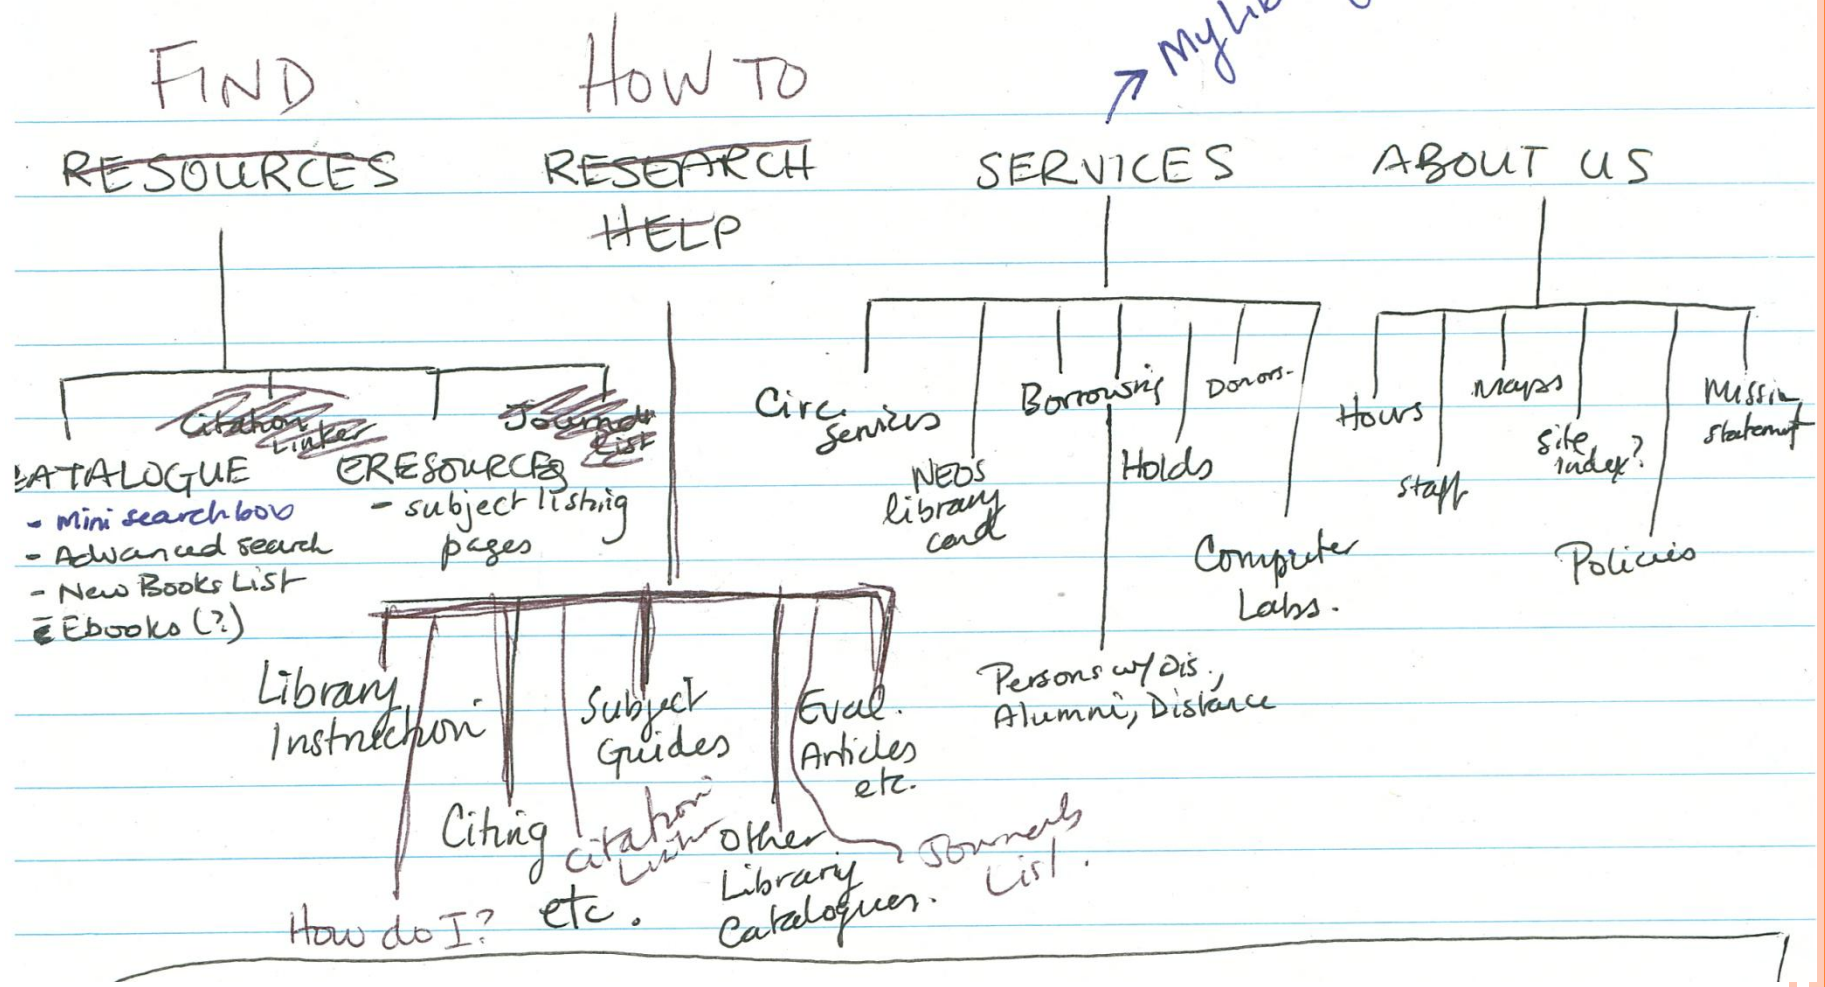 FIND
HOW TO
RESOURCES
RESEARCH
HELP
SERVICES
ABOUT US
Citation
Linker
Journal
List
CATALOGUE
- Mini search box
- Advanced search
- New Books List
- Ebooks (?)
ERESOURCES
- subject listing
pages
Library
Instruction
How do I?
Citing
etc.
Citation
Linker
Subject
Guides
Other
Library
Catalogues.
Eval.
Articles
etc.
Journals
List.
Circ.
Services
NEOS
library
card
Borrowing
Persons w/ Dis.,
Alumni, Distance
Holds
Donors.
Computer
Labs.
Hours
Staff
Maps
Site
index?
Policies
Mission
statement